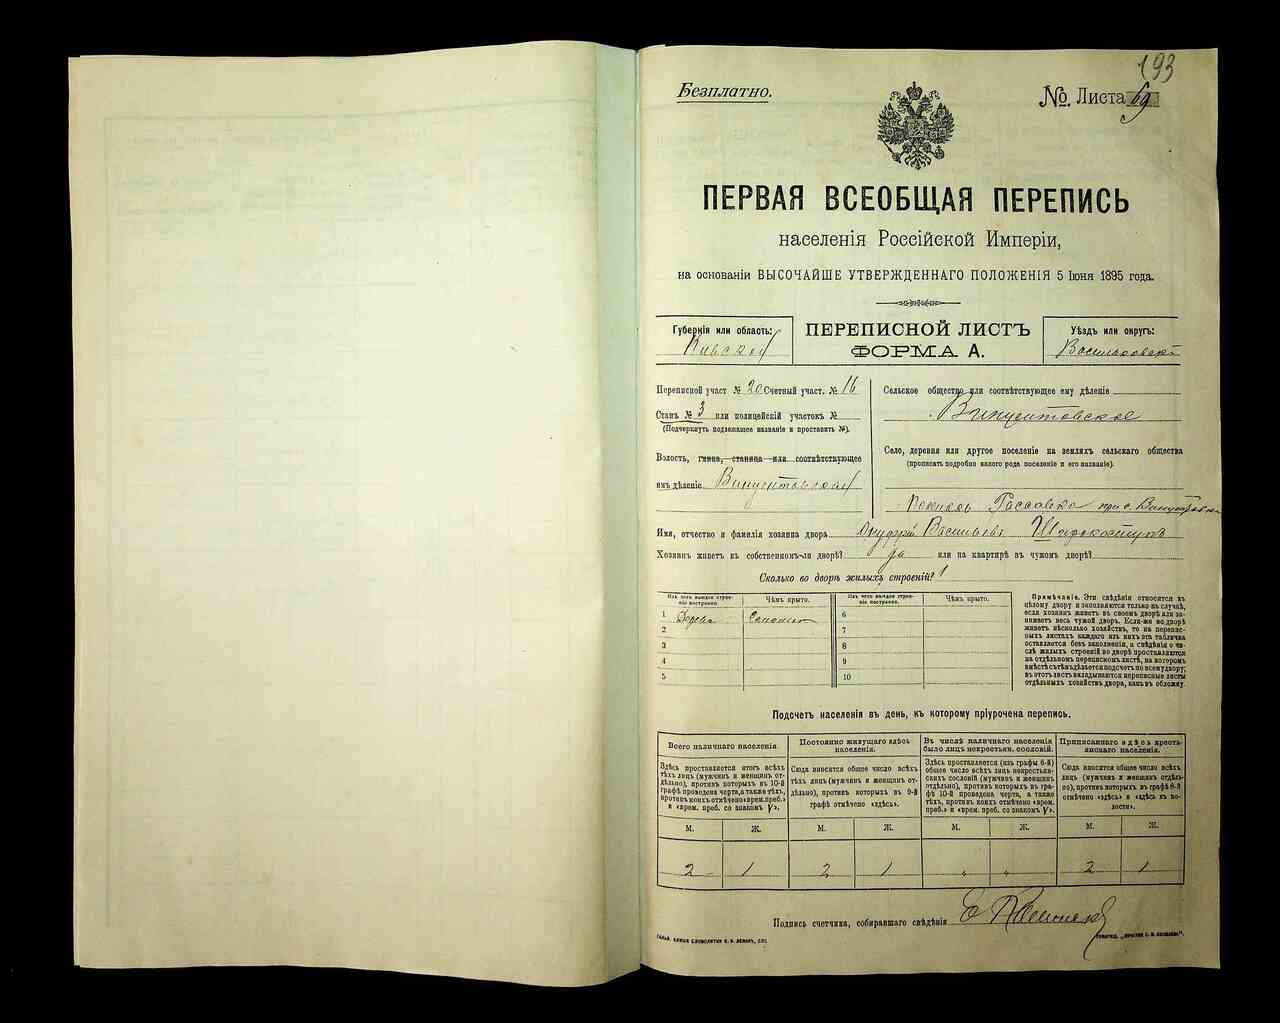 193
Безплатно.
№. Листа 69
ПЕРВАЯ ВСЕОБЩАЯ ПЕРЕПИСЬ
населенія Россійской Имперіи,
на основаніи ВЫСОЧАЙШЕ УТВЕРЖДЕННАГО ПОЛОЖЕНІЯ 5 Іюня 1895 года.
Губернія или область:
Кивская
ПЕРЕПИСНОЙ ЛИСТЪ
ФОРМА А.
Уѣздъ или округъ:
Васильковскій
Переписной участ № 20 Счетный участ. № 16
Станъ № 3 или полицейскій участокъ №
(Подчеркнуть подлежащее названіе и проставить №).
Волость, гмина, станица или соотвѣтствующее
имъ дѣленіе Винцентовская
Сельское общество или соотвѣтствующее ему дѣленіе
Винцентовское
Село, деревня или другое поселеніе на земляхъ сельскаго общества
(прописать подробно какого рода поселеніе и его названіе).
при с.
Имя, отчество и фамилія хозяина двора Васильевъ
Хозяинъ живетъ въ собственномъ-ли дворѣ? да или на квартирѣ въ чужомъ дворѣ?
Сколько во дворѣ жилыхъ строеній? 1
Изъ чего каждое строеніе построено. Чѣмъ крыто. Изъ чего каждое строеніе построено. Чѣмъ крыто.
1 Дерева Соломой 6
2 7
3 8
4 9
5 10
Примѣчаніе. Эти свѣдѣнія относятся къ
цѣлому двору и заполняются только въ случаѣ,
если хозяинъ живетъ въ своемъ дворѣ или занимаетъ весь чужой дворъ. Если-же во дворѣ
живетъ нѣсколько хозяйствъ, то на переписныхъ листахъ каждаго изъ нихъ эта табличка
оставляется безъ заполненія, а свѣдѣнія о числѣ жилыхъ строеній во дворѣ проставляются
на отдѣльномъ переписномъ листѣ, на которомъ
вмѣстѣ съ тѣмъ дѣлается подсчетъ по всему двору;
въ этотъ листъ вкладываются переписные листы
отдѣльныхъ хозяйствъ двора, какъ въ обложку.
Подсчетъ населенія въ день, къ которому пріурочена перепись.
Всего наличнаго населенія.
Здѣсь проставляется итогъ всѣхъ
тѣхъ лицъ (мужчинъ и женщинъ отдѣльно), противъ которыхъ въ 10-й
графѣ проведена черта, а также тѣхъ,
противъ коихъ отмѣчено «врем. преб.»
и «врем. преб. со знакомъ V».
Постоянно живущаго здѣсь
населенія.
Сюда вносится общее число всѣхъ
тѣхъ лицъ (мужчинъ и женщинъ отдѣльно), противъ которыхъ въ 9-й
графѣ отмѣчено «здѣсь».
Въ числѣ наличнаго населенія
было лицъ некрестьян. сословій.
Здѣсь проставляется (изъ графы 6-й)
общее число всѣхъ лицъ некрестьянскихъ сословій (мужчинъ и женщинъ
отдѣльно), противъ которыхъ въ графѣ 10-й проведена черта, а также
тѣхъ, противъ коихъ отмѣчено «врем.
преб.» и «врем. преб. со знакомъ V».
Приписаннаго здѣсь крестьянскаго населенія.
Сюда вносится общее число всѣхъ
лицъ (мужчинъ и женщинъ отдѣльно), противъ которыхъ въ графѣ 8-й
отмѣчено «здѣсь» и «здѣсь въ волости».
М. Ж. М. Ж. М. Ж. М. Ж.
2 1 2 1 " " 2 1
Подпись счетчика, собиравшаго свѣдѣнія